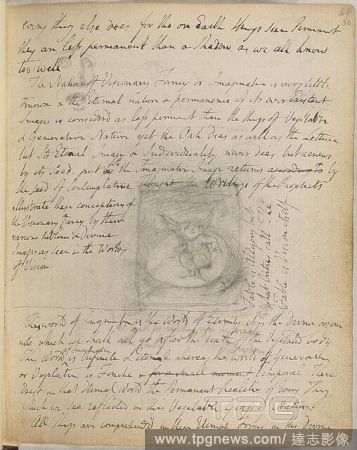 every thing else does for tho on Earth things seem Permanent
they are less permanent than a Shadow as we all know
too well
The Nature of Visionary Fancy or Imagination is very little
Known & the Eternal nature & permanence of its ever Existent
Images is considerd as less permanent than the things of Vegetative
& Generative Nature yet the Oak dies as well as the Lettuce
but Its Eternal Image & Individuality never dies. but renews
by its seed. just so the Imaginative Image returns according to
the seed of Contemplative Thought the Writings of the Prophets
illustrate these conceptions of
the Visionary Fancy by their
various sublime & Divine
Images as seen in the Worlds
of Vision
Fable is Allegory but
what Critics call The
Fable is Vision itself
This world of Imagination is the World of Eternity it is the Divine bosom
into which we shall all go after the death of the Vegetated body
of Imagination
This World is Infinite & Eternal whereas the world of Generation
or Vegetation is Finite & for a small moment Temporal There
Exist in that Eternal World the Permanent Realities of Every Thing
which we see reflected in this Vegetable Glass of Nature
All Things are comprehended in their Eternal Forms in the Divine
TPG
www.tpgnews.com/達志影像